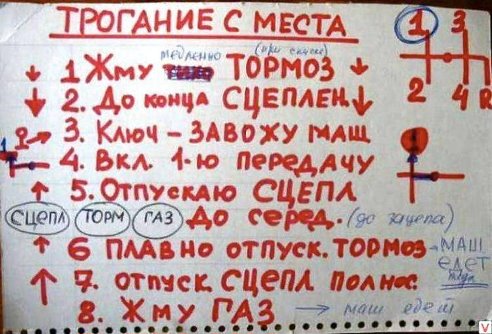 ТРОГАНИЕ С МЕСТА
медленно (при спуске)
1 Жму ТОРМОЗ
2. До конца СЦЕПЛЕН.
3. Ключ – ЗАВОЖУ МАШ
4. Вкл. 1-ю ПЕРЕДАЧУ
5. Отпускаю СЦЕПЛ
СЦЕПЛ ТОРМ ГАЗ До серед. (до зацепа)
6 ПЛАВНО отпуск. ТОРМОЗ → МАШ ЕДЕТ
7. отпуск. СЦЕПЛ полнос.
8. Жму ГАЗ → маш едет
1 3
2 4 R
1